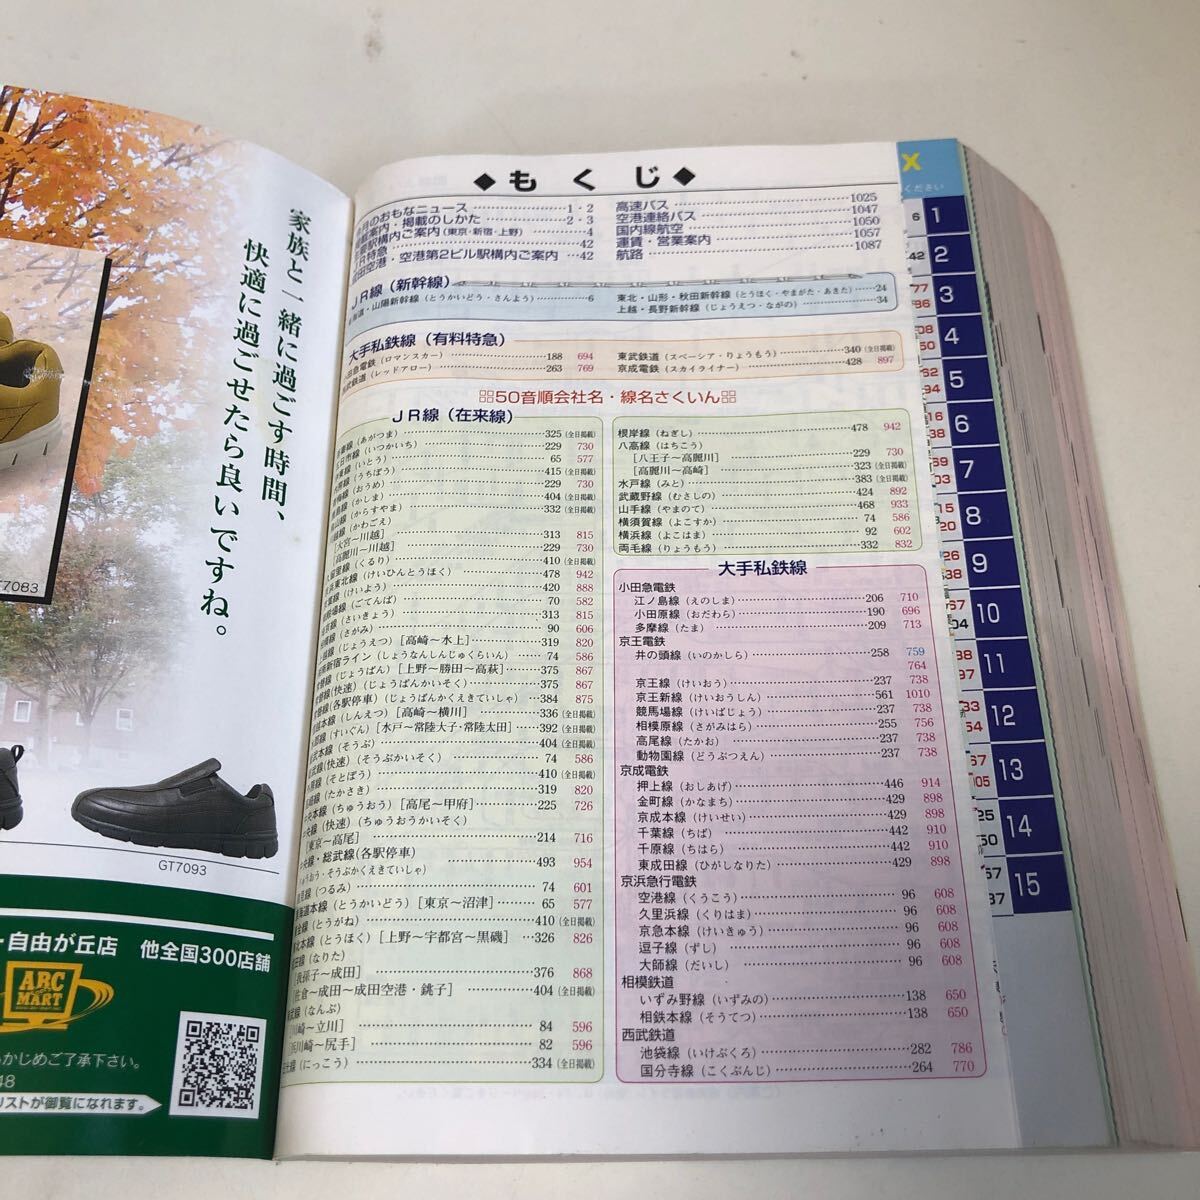 家族と一緒に過ごす時間、
快適に過ごせたら良いですね。
GT7093
自由が丘店 他全国300店舗
ARC
MART
かじめご了承下さい。
リストが御覧になれます。
◆もくじ◆
のおもなニュース 1・2
案内・掲載のしかた 2・3
駅構内ご案内(東京・新宿・上野) 4
特急 42
空港・空港第2ビル駅構内ご案内 42
高速バス 1025
空港連絡バス 1047
国内線航空 1050
運賃・営業案内 1057
航路 1087
JR線(新幹線)
海道・山陽新幹線(とうかいどう・さんよう) 6
東北・山形・秋田新幹線(とうほく・やまがた・あきた) 24
上越・長野新幹線(じょうえつ・ながの) 34
大手私鉄線(有料特急)
急電鉄(ロマンスカー) 188 694
武鉄道(レッドアロー) 263 769
東武鉄道(スペーシア・りょうもう) 340(全日掲載)
京成電鉄(スカイライナー) 428 897
50音順会社名・線名さくいん
JR線(在来線)
妻線(あがつま) 325(全日掲載)
日市線(いつかいち) 229 730
東線(いとう) 65 577
房線(うちぼう) 415(全日掲載)
梅線(おうめ) 229 730
島線(かしま) 404(全日掲載)
山線(からすやま) 332(全日掲載)
越線(かわごえ)
[大宮〜川越] 313 815
[高麗川〜川越] 229 730
留里線(くるり) 410(全日掲載)
浜東北線(けいひんとうほく) 478 942
葉線(けいよう) 420 888
殿場線(ごてんば) 70 582
京線(さいきょう) 313 815
模線(さがみ) 90 606
越線(じょうえつ)[高崎〜水上] 319 820
南新宿ライン(しょうなんしんじゅくらいん) 74 586
磐線(じょうばん)[上野〜勝田〜高萩] 375 867
磐線(快速)(じょうばんかいそく) 375 867
磐線(各駅停車)(じょうばんかくえきていしゃ) 384 875
越本線(しんえつ)[高崎〜横川] 336(全日掲載)
郡線(すいぐん)[水戸〜常陸大子・常陸太田] 392(全日掲載)
武本線(そうぶ) 404(全日掲載)
武線(快速)(そうぶかいそく) 74 586
房線(そとぼう) 410(全日掲載)
崎線(たかさき) 319 820
央本線(ちゅうおう)[高尾〜甲府] 225 726
央線(快速)(ちゅうおうかいそく)
[東京〜高尾] 214 716
央線・総武線(各駅停車) 493 954
ゅうおう・そうぶかくえきていしゃ)
見線(つるみ) 74 601
海道本線(とうかいどう)[東京〜沼津] 65 577
金線(とうがね) 410(全日掲載)
北本線(とうほく)[上野〜宇都宮〜黒磯] 326 826
田線(なりた)
[我孫子〜成田] 376 868
[佐倉〜成田〜成田空港・銚子] 404(全日掲載)
武線(なんぶ)
[川崎〜立川] 84 596
浜川崎〜尻手] 82 596
光線(にっこう) 334(全日掲載)
根岸線(ねぎし) 478 942
八高線(はちこう)
[八王子〜高麗川] 229 730
[高麗川〜高崎] 323(全日掲載)
水戸線(みと) 383(全日掲載)
武蔵野線(むさしの) 424 892
山手線(やまのて) 468 933
横須賀線(よこすか) 74 586
横浜線(よこはま) 92 602
両毛線(りょうもう) 332 832
大手私鉄線
小田急電鉄
江ノ島線(えのしま) 206 710
小田原線(おだわら) 190 696
多摩線(たま) 209 713
京王電鉄
井の頭線(いのかしら) 258 759
764
京王線(けいおう) 237 738
京王新線(けいおうしん) 561 1010
競馬場線(けいばじょう) 237 738
相模原線(さがみはら) 255 756
高尾線(たかお) 237 738
動物園線(どうぶつえん) 237 738
京成電鉄
押上線(おしあげ) 446 914
金町線(かなまち) 429 898
京成本線(けいせい) 429 898
千葉線(ちば) 442 910
千原線(ちはら) 442 910
東成田線(ひがしなりた) 429 898
京浜急行電鉄
空港線(くうこう) 96 608
久里浜線(くりはま) 96 608
京急本線(けいきゅう) 96 608
逗子線(ずし) 96 608
大師線(だいし) 96 608
相模鉄道
いずみ野線(いずみの) 138 650
相鉄本線(そうてつ) 138 650
西武鉄道
池袋線(いけぶくろ) 282 786
国分寺線(こくぶんじ) 264 770
X
ください
1
2
3
4
5
6
7
8
9
10
11
12
13
14
15